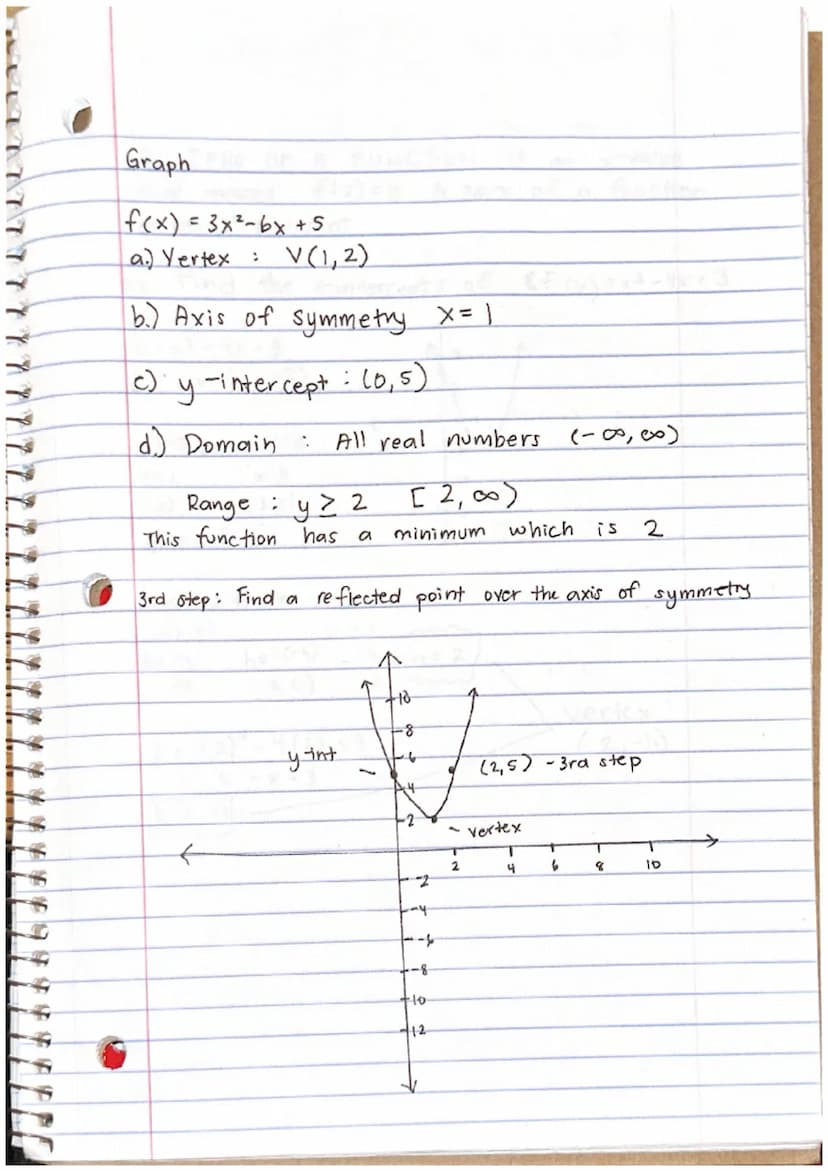 Graph
f(x) = 3x²-6x + 5
a.) Vertex : V(1,2)
b.) Axis of symmetry x = 1
c) y-intercept : (0,5)
d.) Domain : All real numbers (-∞, ∞)
Range : y ≥ 2 [2, ∞)
This function has a minimum which is 2
3rd step: Find a reflected point over the axis of symmetry
10
8
6
y-int
(2,5) - 3rd step
4
2
- vertex
2 4 6 8 10
-2
-4
-6
-8
-10
12